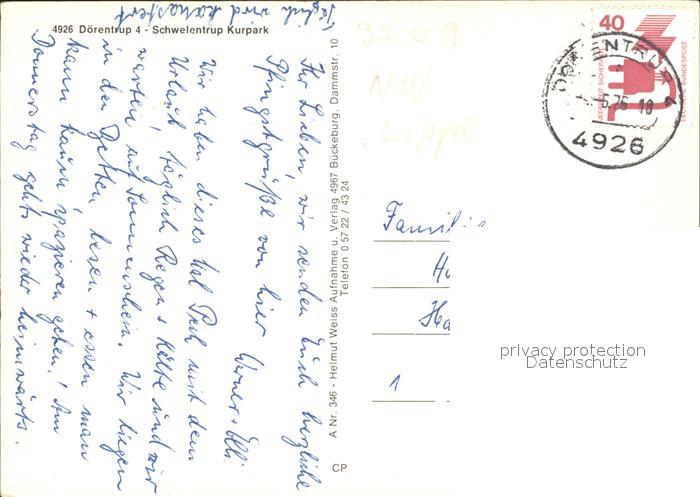 4926 Dörentrup 4 - Schwelentrup Kurpark
Ihr Lieben, wir senden Euch herzliche
Pfingstgrüße von hier Werner + Elli.
Wir haben dieses Mal Pech mit dem
Urlaub täglich Regen + Kälte und wir
warten auf Sonnenschein. Wir liegen
in den Betten lesen + essen man
kann kaum spazieren gehen! Am
Donnerstag gehts wieder heimwärts.
Täglich wird
A Nr. 346 - Helmut Weiss Aufnahme u. Verlag 4967 Bückeburg, Dammstr. 10
Telefon 0 57 22 / 43 24
CP
Lippe
40
DEUTSCHE BUNDESPOST
JEDERZEIT SICHERHEIT
DÖRENTRUP
4926
Familie
Ha
1
privacy protection
Datenschutz